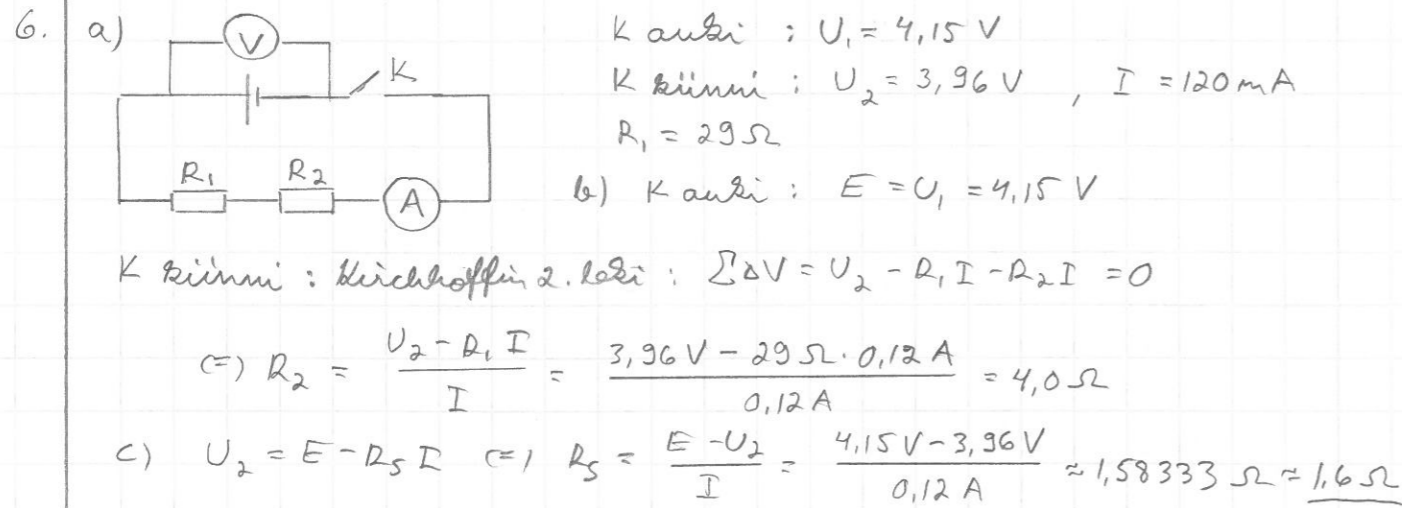 6. a)
V
K
R₁ R₂ A
K auki : U₁ = 4,15 V
K kiinni : U₂ = 3,96 V , I = 120 mA
R₁ = 29 Ω
b) K auki : E = U₁ = 4,15 V
K kiinni : Kirchhoffin 2. laki : ΣΔV = U₂ - R₁I - R₂I = 0
(=) R₂ = (U₂ - R₁ I) / I = (3,96 V - 29 Ω · 0,12 A) / (0,12 A) = 4,0 Ω
c) U₂ = E - R_S I (=) R_S = (E - U₂) / I = (4,15 V - 3,96 V) / (0,12 A) ≈ 1,58333 Ω ≈ 1,6 Ω